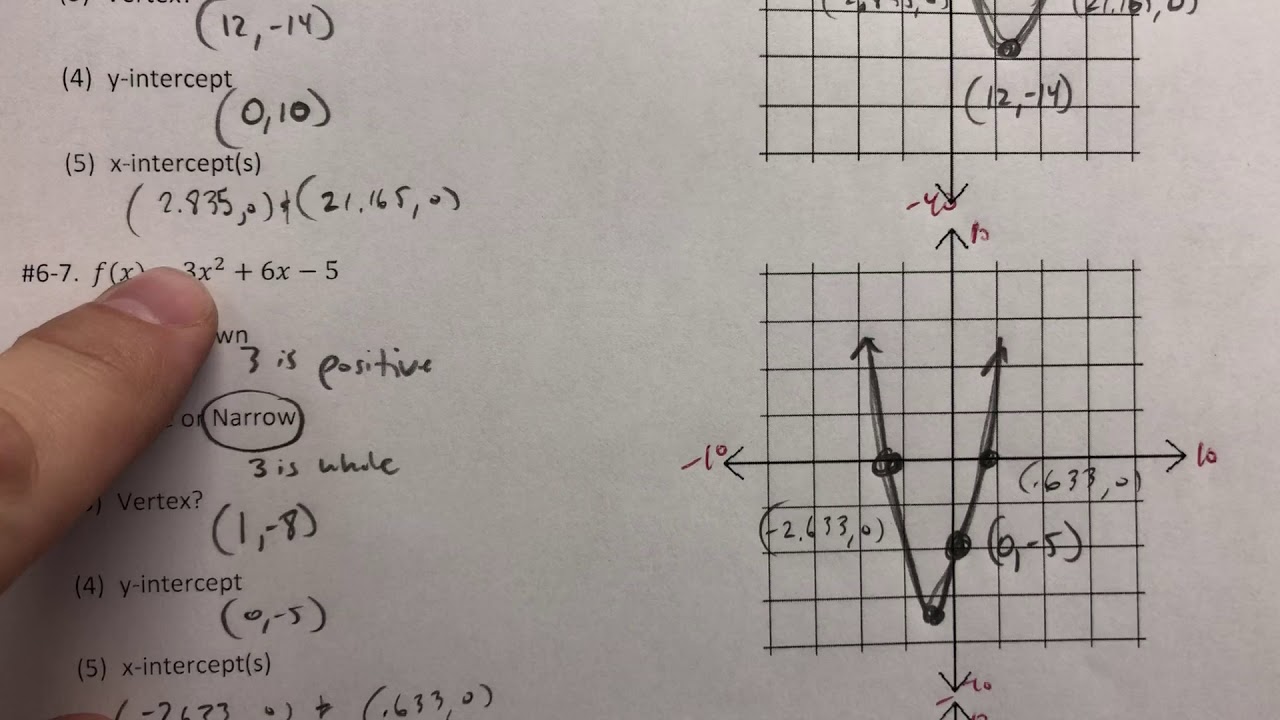 Vertex?
(12,-14)
(4) y-intercept
(0,10)
(5) x-intercept(s)
(2.835,0) & (21.165,0)
#6-7. f(x) 3x² + 6x − 5
wn
3 is positive
or Narrow
3 is whole
) Vertex?
(1,-8)
(4) y-intercept
(0,-5)
(5) x-intercept(s)
(-2.633,0) & (.633,0)
(21.165,0)
(12,-14)
-40
10
-10
10
(.633,0)
(-2.633,0)
(0,-5)
-10